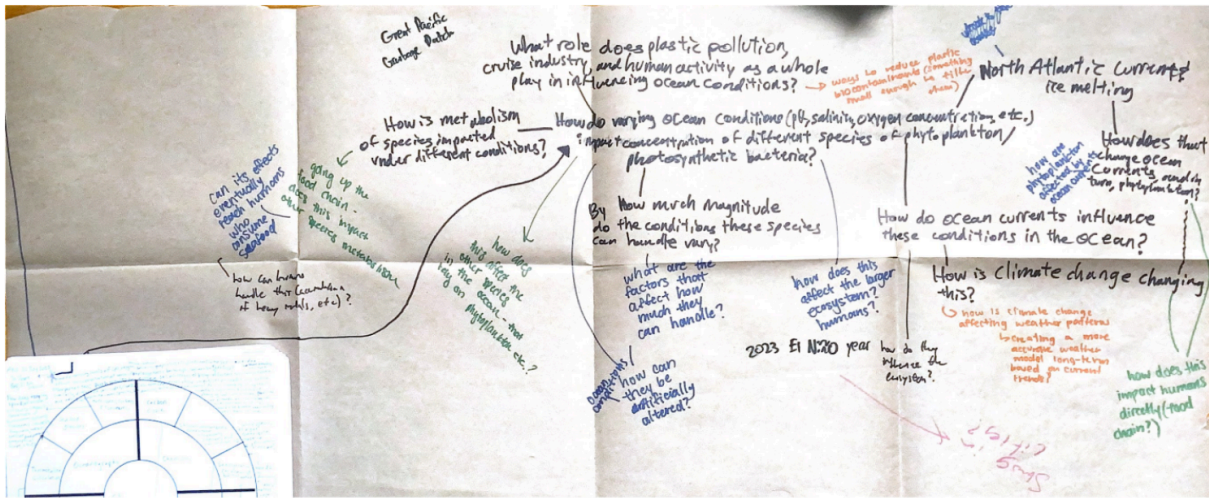 Great Pacific
Garbage Patch
What role does plastic pollution,
cruise industry, and human activity as a whole
play in influencing ocean conditions?
ways to reduce plastic
biocontaminants (something
small enough to filter
them)
North Atlantic currents
ice melting
How is metabolism
of species impacted
under different conditions?
How do varying ocean conditions (pH, salinity, oxygen concentration, etc.)
impact concentration of different species of phytoplankton/
photosynthetic bacteria?
How does that
change ocean
currents, and in
turn, phytoplankton?
how are
phytoplankton
affected by
ocean currents
going up the
food chain -
does this impact
other species metabolism
can its effects
eventually
reach humans
who
consume
seafood?
how can humans
handle this
of heavy metals, etc)?
how does
this affect the
other species
in the ocean - that
rely on
phytoplankton etc.?
By How much magnitude
do the conditions these species
can handle vary?
what are the
factors that
affect how
much they
can handle?
how does this
affect the larger
ecosystem?
humans?
How do ocean currents influence
these conditions in the ocean?
How is climate change changing
this?
how is climate change
affecting weather patterns
creating a more
accurate weather
model long-term
based on current
trends?
2023 El Niño year
how do they
influence the
ecosystem?
conditions/
how can
they be
artificially
altered?
how does this
impact humans
directly (food
chain?)
Smog in
cities?